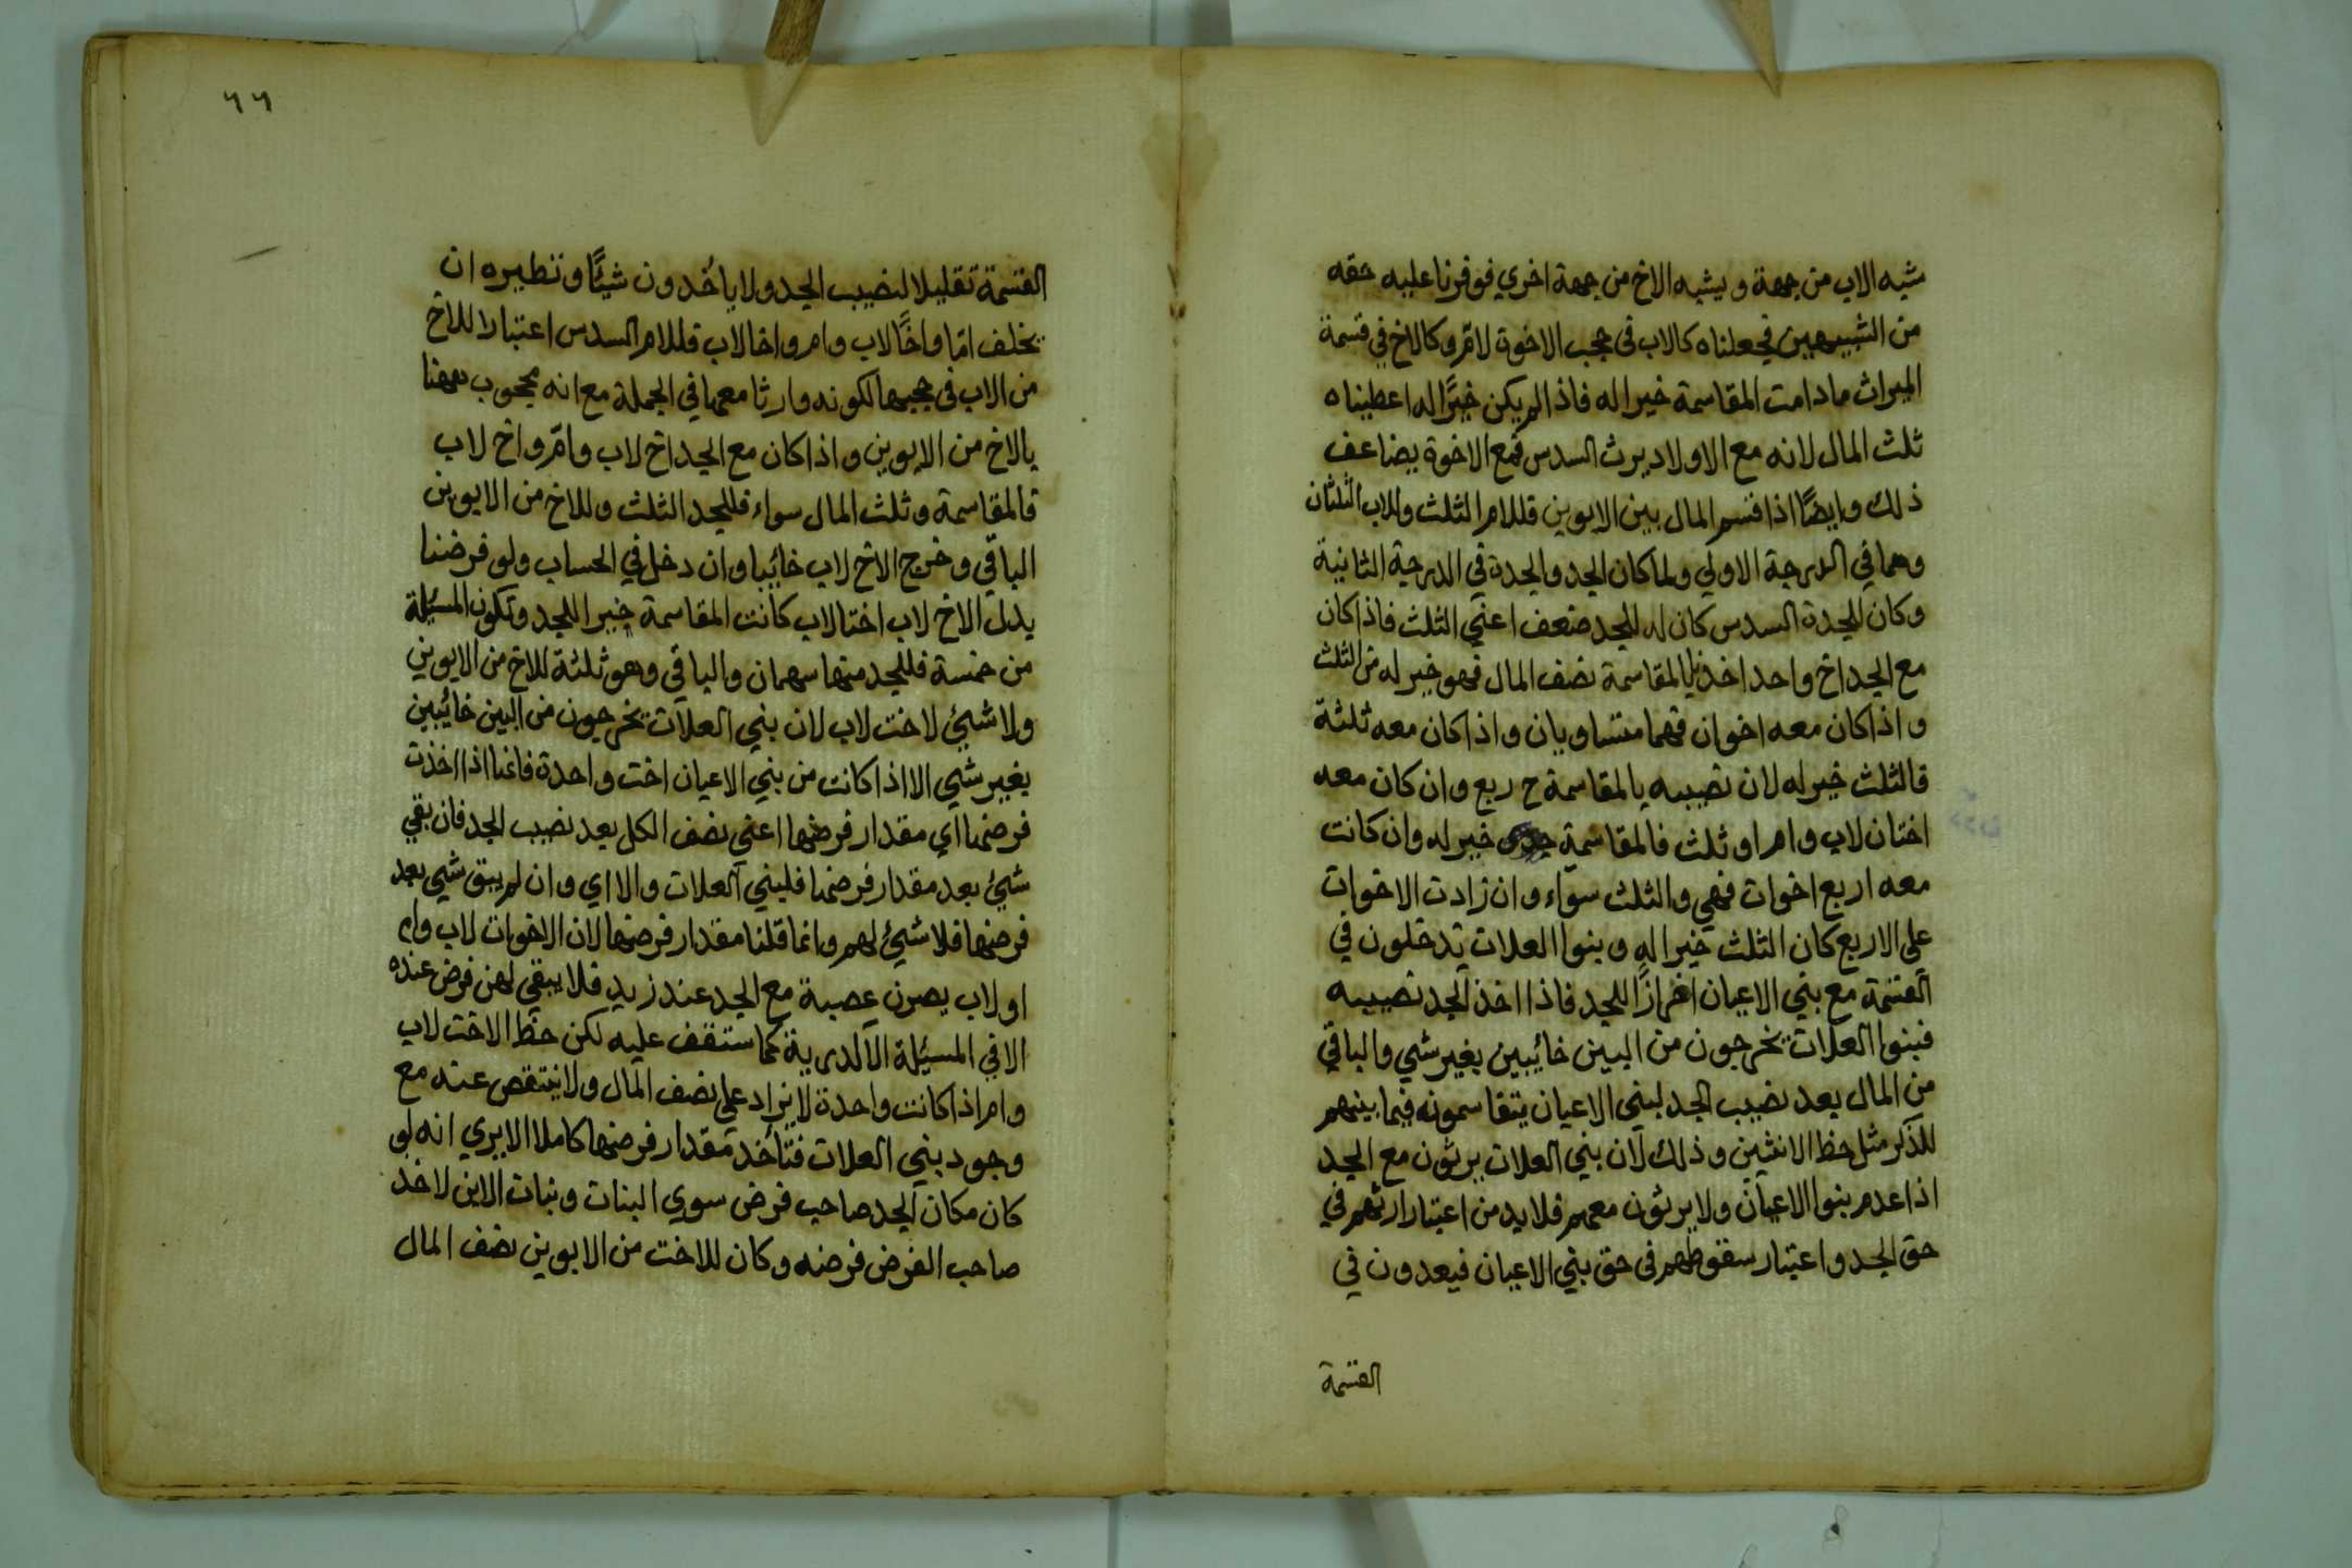 شبه الاب من جهة ويشبه الاخ من جهة اخري فوفرنا عليه حقه
من الشبيهين فجعلناه كالاب فى حجب الاخوة لام وكالاخ في قسمة
الميراث مادامت المقاسمة خيرا له فاذا لم يكن خيرًا له اعطيناه
ثلث المال لانه مع الاولاد يرث السدس فمع الاخوة يضاعف
ذلك وايضًا اذا قسم المال بين الابوين فللام الثلث وللاب الثلثان
وهما في الدرجة الاولي ولما كان الجد والجدة في الدرجة الثانية
وكان للجدة السدس كان للجد ضعف اعني الثلث فاذا كان
مع الجد اخ واحد اخذ بالمقاسمة نصف المال فهو خير له من الثلث
واذا كان معه اخوان فهما متساويان واذا كان معه ثلثة
فالثلث خير له لان نصيبه بالمقاسمة ح ربع وان كان معه
اختان لاب وام او ثلث فالمقاسمة خير له وان كانت
معه اربع اخوات فهي والثلث سوّاء وان زادت الاخوات
على الاربع كان الثلث خيرا له وبنوا العلات تدخلون في
القسمة مع بني الاعيان اضرازًا للجد فاذا اخذ الجد نصيبه
فبنوا العلات يخرجون من البين خائبين بغير شي والباقي
من المال بعد نصيب الجد لبني الاعيان يتقاسمونه فيما بينهم
للذكر مثل حظ الانثيين وذلك لان بني العلات يرثون مع الجد
اذا عدم بنوا الاعيان ولا يرثون معهم فلا بد من اعتبار ارثهم في
حق الجد واعتبار سقوطهم فى حق بني الاعيان فيعدون في
القسمة
٦٦
القسمة تقليلا لنصيب الجد ولا ياخدون شيئًا ونظيره ان
يخلف امّا واخًا لاب وام واخا لاب فللام السدس اعتبارا للاخ
من الاب فى حجبها لكونه وارثا معها في الجملة مع انه محجوب ههنا
بالاخ من الابوين واذا كان مع الجد اخ لاب وامّ واخ لاب
فالمقاسمة وثلث المال سواء فللجد الثلث وللاخ من الابوين
الباقي وخرج الاخ لاب خائبا وان دخل في الحساب ولو فرضنا
بدل الاخ لاب اختا لاب كانت المقاسمة خيرا للجد وتكون المسئلة
من خمسة فللجد منها سهمان والباقي وهو ثلثة للاخ من الابوين
ولا شيئ لاخت لاب لان بني العلات يخرجون من البين خائبين
بغير شي الا اذا كانت من بني الاعيان اخت واحدة فانها اذا اخذت
فرضها اي مقدار فرضها اعني نصف الكل بعد نصيب الجد فان بقي
شيئ بعد مقدار فرضها فلبني العلات والا اي وان لم يبق شي بعد
فرضها فلا شيئ لهم وانما قلنا مقدار فرضها لان الاخوات لاب وام
او لاب يصرن عصبة مع الجد عند زيد فلا يبقي لهن فرض عنده
الا في المسئلة الاكدرية كما ستقف عليه لكن حظ الاخت لاب
وام اذا كانت واحدة لا يزاد علي نصف المال ولا ينتقص عنه مع
وجود بني العلات فتأخد مقدار فرضها كاملا الا يري انه لو
كان مكان الجد صاحب فرض سوي البنات وبنات الابن لاخذ
صاحب الفرض فرضه وكان للاخت من الابوين نصف المال